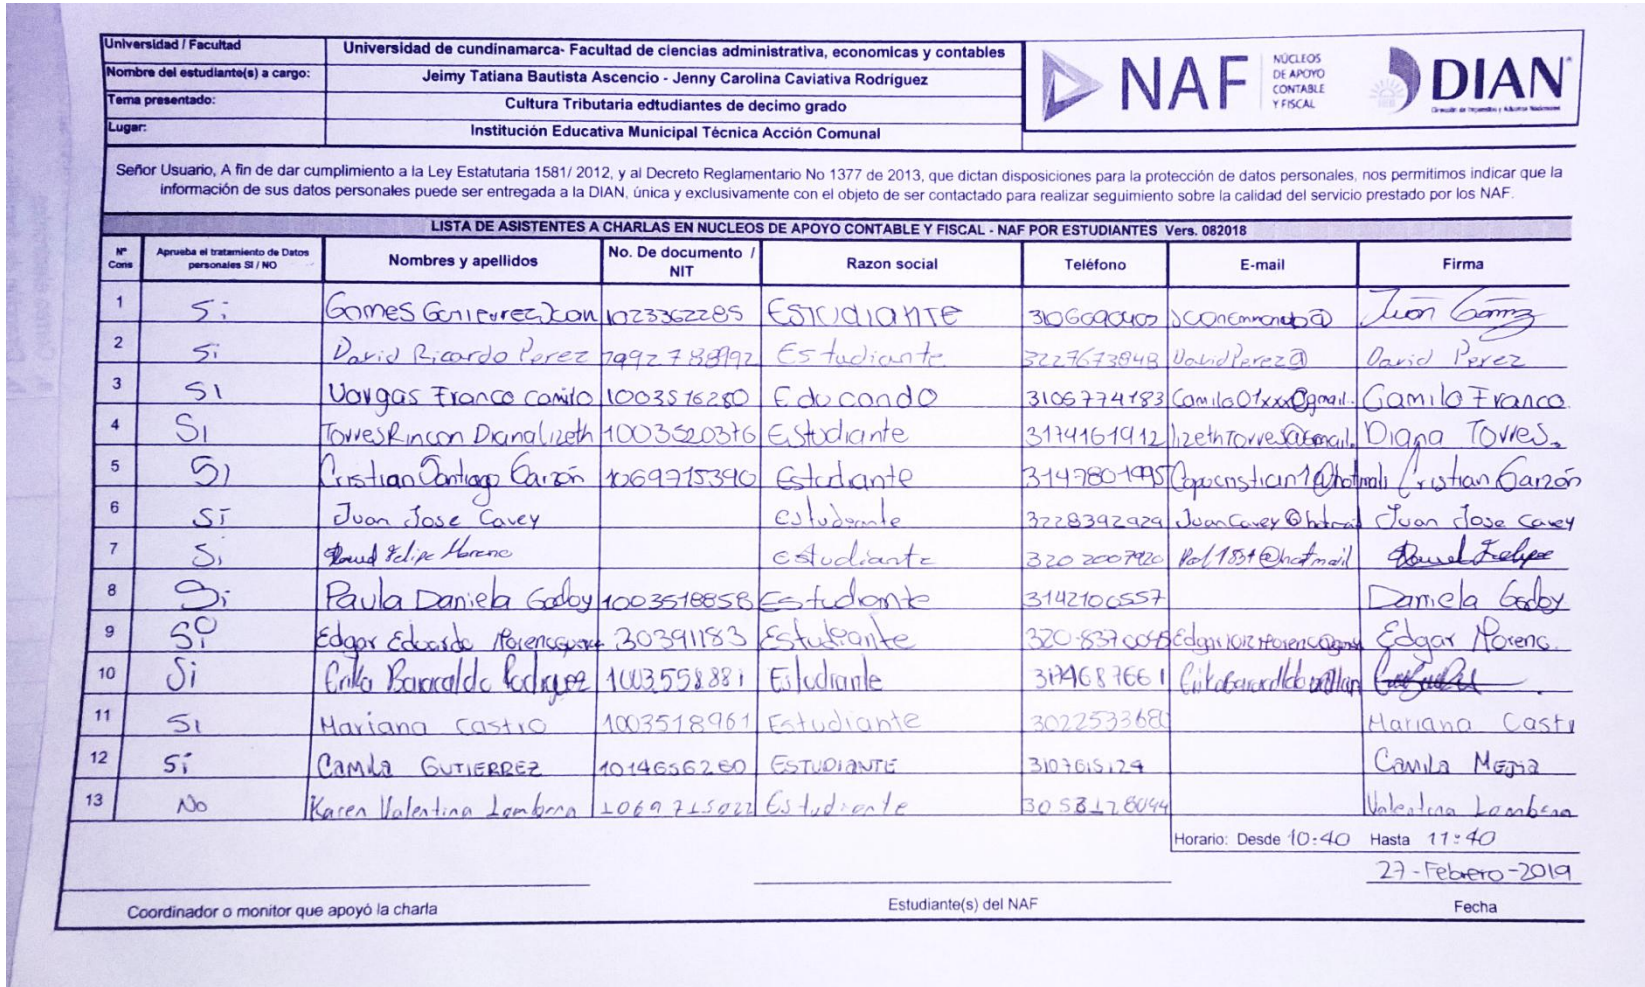 Universidad / Facultad Universidad de cundinamarca- Facultad de ciencias administrativa, economicas y contables
Nombre del estudiante(s) a cargo: Jeimy Tatiana Bautista Ascencio - Jenny Carolina Caviativa Rodriguez
Tema presentado: Cultura Tributaria edtudiantes de decimo grado
Lugar: Institución Educativa Municipal Técnica Acción Comunal
NAF NÚCLEOS DE APOYO CONTABLE Y FISCAL
DIAN
Señor Usuario, A fin de dar cumplimiento a la Ley Estatutaria 1581/ 2012, y al Decreto Reglamentario No 1377 de 2013, que dictan disposiciones para la protección de datos personales, nos permitimos indicar que la
información de sus datos personales puede ser entregada a la DIAN, única y exclusivamente con el objeto de ser contactado para realizar seguimiento sobre la calidad del servicio prestado por los NAF.
LISTA DE ASISTENTES A CHARLAS EN NUCLEOS DE APOYO CONTABLE Y FISCAL - NAF POR ESTUDIANTES Vers. 082018
Nº Cons Aprueba el tratamiento de Datos personales SI / NO Nombres y apellidos No. De documento / NIT Razon social Teléfono E-mail Firma
1 Si Gomes 1023362285 Estudiante Juan Gómez
2 Si David Ricardo Perez Estudiante 3227673848 DavidPerez@ David Perez
3 SI Vargas Franco Camilo 1003516280 Educando 3106774183 Camilo01xxx@gmail. Camilo Franco.
4 Si Torres Rincon Diana lizeth 1003520376 Estudiante 3174161912 Diana Torres.
5 Si Cristian Santiago Garzón 1069715390 Estudiante 3147801995 Cristian Garzón
6 SI Juan Jose Cavey estudiante 3228392929 Juan Jose Cavey
7 Si Felipe Moreno estudiante 3202007920 Felipe
8 Si Paula Daniela Godoy 1003518858 Estudiante 3142106557 Daniela Godoy
9 Si Edgar Eduardo 30391183 Estudiante Edgar Moreno.
10 Si Erika Baracaldo Rodriguez 1003558881 Estudiante 3174687661
11 Si Mariana Castro 1003518961 Estudiante 3022533680 Mariana Castr
12 Si Camila GUTIERREZ 1014656260 ESTUDIANTE 3107615129 Camila Mejia
13 No Karen Valentina 1069715022 Estudiante 3058128044 Valentina
Horario: Desde 10:40 Hasta 11:40
27-Febrero-2019
Coordinador o monitor que apoyó la charla Estudiante(s) del NAF Fecha